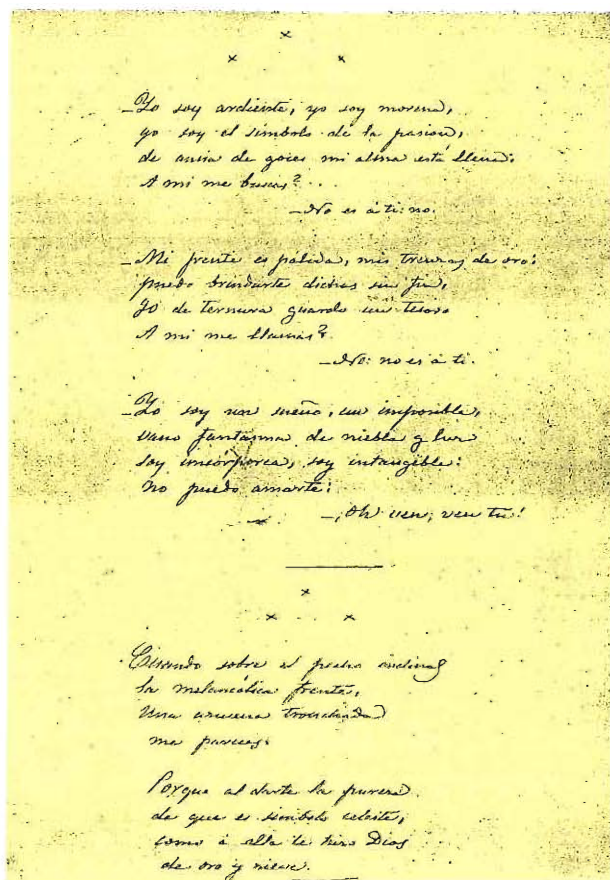 —Yo soy ardiente, yo soy morena,
yo soy el símbolo de la pasion,
de ansia de goces mi alma está llena.
A mi me buscas?...
—No es á ti: no.
—Mi frente es pálida, mis trenzas de oro:
puedo brindarte dichas sin fin,
Yo de ternura guardo un tesoro
A mi me llamas?
—No: no es á ti.
—Yo soy un sueño, un imposible,
vano fantasma de niebla y luz
soy incorporea, soy intangible:
no puedo amarte:
—¡Oh ven; ven tu!
Cuando sobre el pecho inclinas
la melancólica frente,
Una azucena tronchada
me pareces.
Porque al darte la pureza
de que es simbolo celeste,
como á ella te hizo Dios
de oro y nieve.